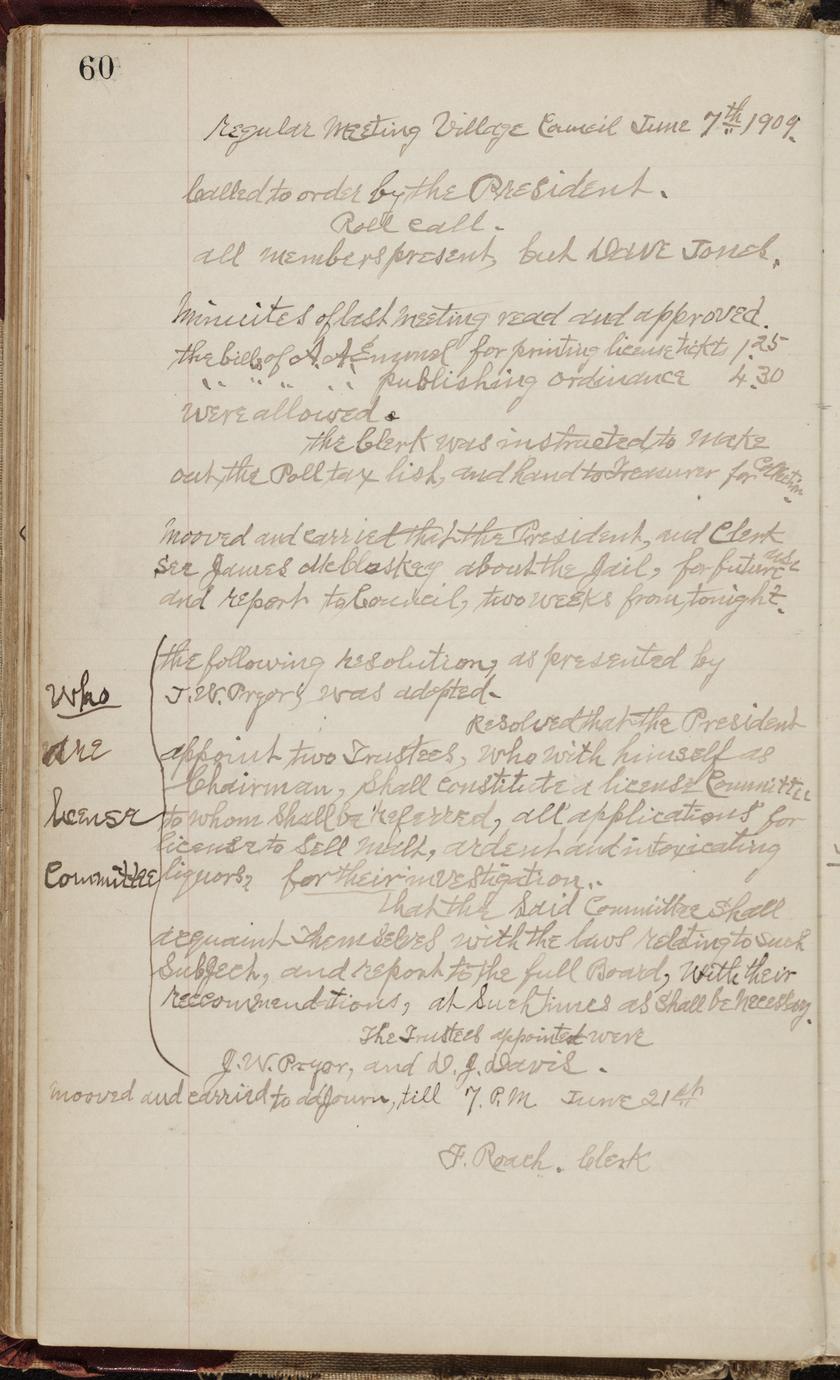 60
Regular Meeting Village Council June 7th 1909.
Called to order by the President.
Roll call.
all members present, but Dave Jones.
Minuites of last Meeting read and approved.
the bills of A. A. for printing license tickts 1.25
" " " " publishing ordinance 4.30
were allowed.
the Clerk was instructed to make
out, the Poll tax list, and hand to Treasurer for Collection.
Mooved and carried that the President, and Clerk
see James McCloskey about the Jail, for future use
and report to Council, two weeks from, tonight.
the following resolution, as presented by
J. W. Pryor, was adopted.
Resolved that the President
appoint two Trustees, who with himself as
Chairman, shall constitute a license Committee
to whom shall be referred, all applications for
license to sell malt, ardent and intoxicating
liquors, for their investigation.
that the said Committee shall
acquaint themselves with the laws relating to such
Subject, and report to the full Board, with their
reccommendations, at such times as shall be necessary.
The Trustees appointed were
J. W. Pryor, and D. J. Davis.
Who
are
license
Committee
mooved and carried to adjourn, till 7. P.M June 21st
F. Roach. Clerk